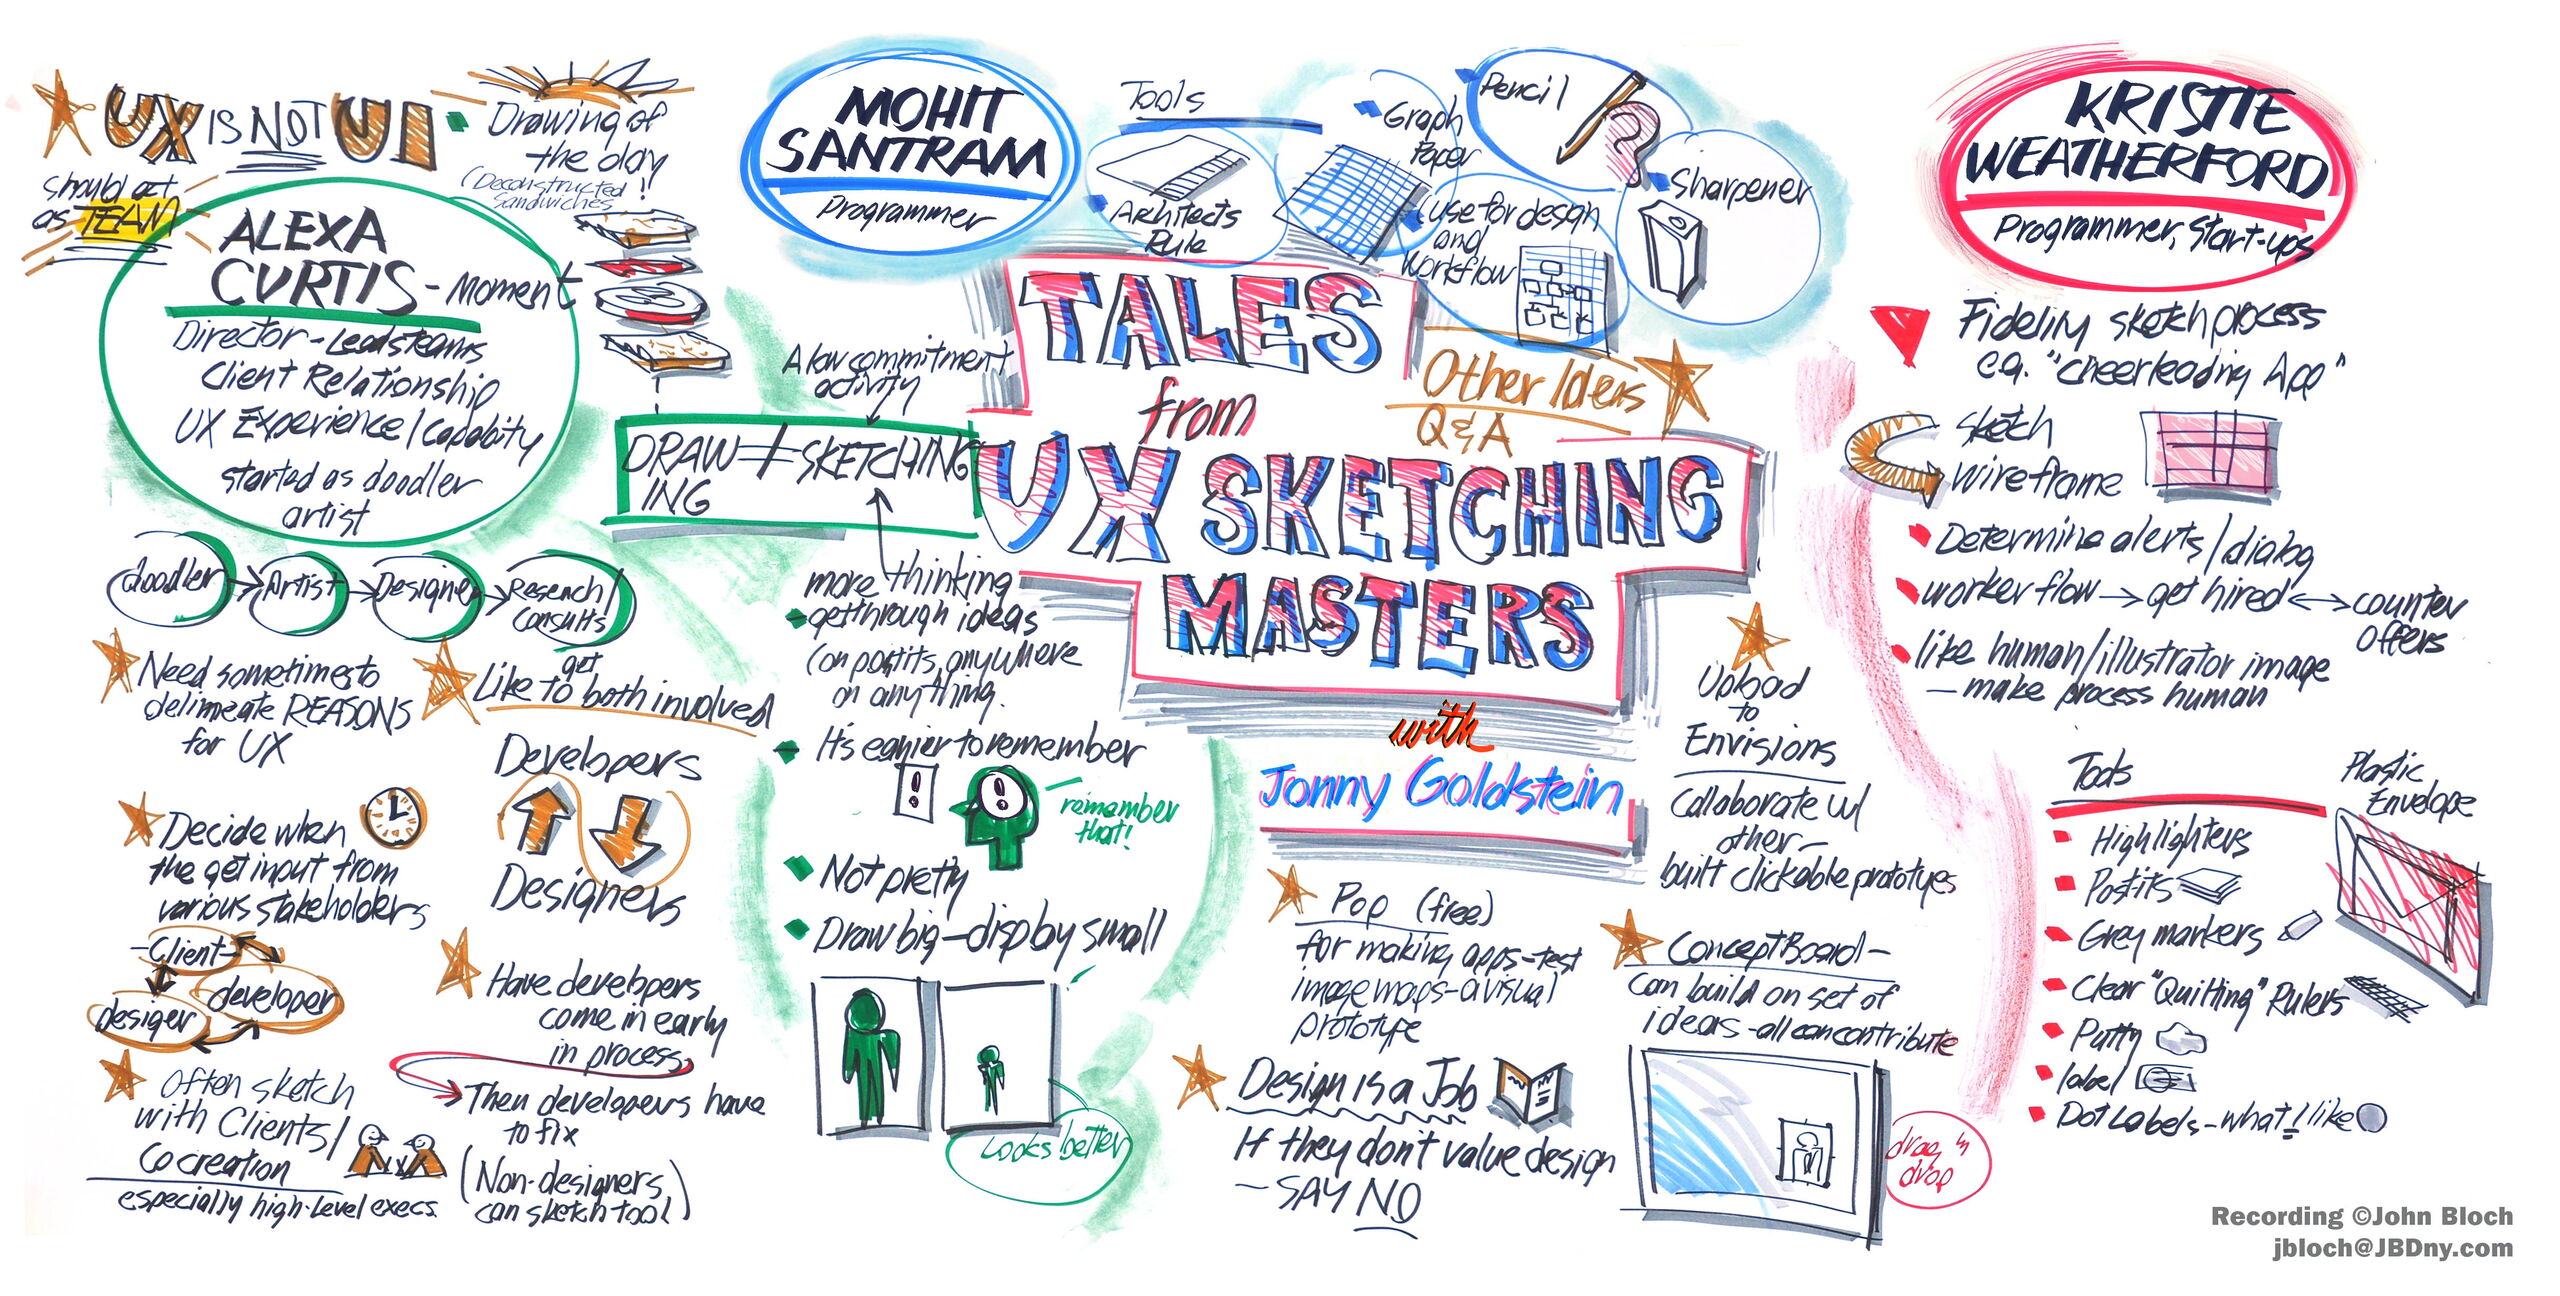 UX IS NOT UI
should act
as TEAM
Drawing of
the day
(Deconstructed
Sandwiches)!!
ALEXA
CURTIS - Moment
Director - Leads teams
Client Relationship
UX Experience/Capability
started as doodler
artist
doodler
Artist
Designer
Research/
Consults
Need sometimes to
delineate REASONS
for UX
Like to get both involved
Developers
Designers
Decide when
the get input from
various stakeholders
-Client-
developer
desiger
Often sketch
with Clients/
Cocreation
especially high-Level execs.
Have developers
come in early
in process,
Then developers have
to fix
(Non-designers
can sketch too!)
A low commitment
activity
DRAW
ING
≠ SKETCHING
more thinking
get through ideas
(on postits, anywhere
on anything.
It's easier to remember
!
remember
that!
Not pretty
Draw big - display small
Looks better
MOHIT
SANTRAM
Programmer
Tools
Architects
Rule
Graph
Paper
Pencil
Sharpener
(use for design
and
Workflow
TALES
from
UX SKETCHING
MASTERS
with
Jonny Goldstein
Other Ideas
Q & A
Upload
to
Envisions
Collaborate w/
other -
built clickable prototyes
Pop (free)
for making apps - test
image maps - a visual
prototype
ConceptBoard -
can build on set of
ideas - all can contribute
drag 'n
drop
Design is a Job
If they don't value design
- SAY NO
KRISTIE
WEATHERFORD
Programmer, Start-ups
Fidelity sketch process
e.g. "Cheerleading App"
sketch
wireframe
Determine alerts/dialog
worker flow → get hired ↔ counter
offers
like human/illustrator image
- make process human
Tools
Highlighters
Postits
Grey markers
Clear "Quilting" Rulers
Putty
label
Dot Labels - what I like
Plastic
Envelope
Recording ©John Bloch
jbloch@JBDny.com